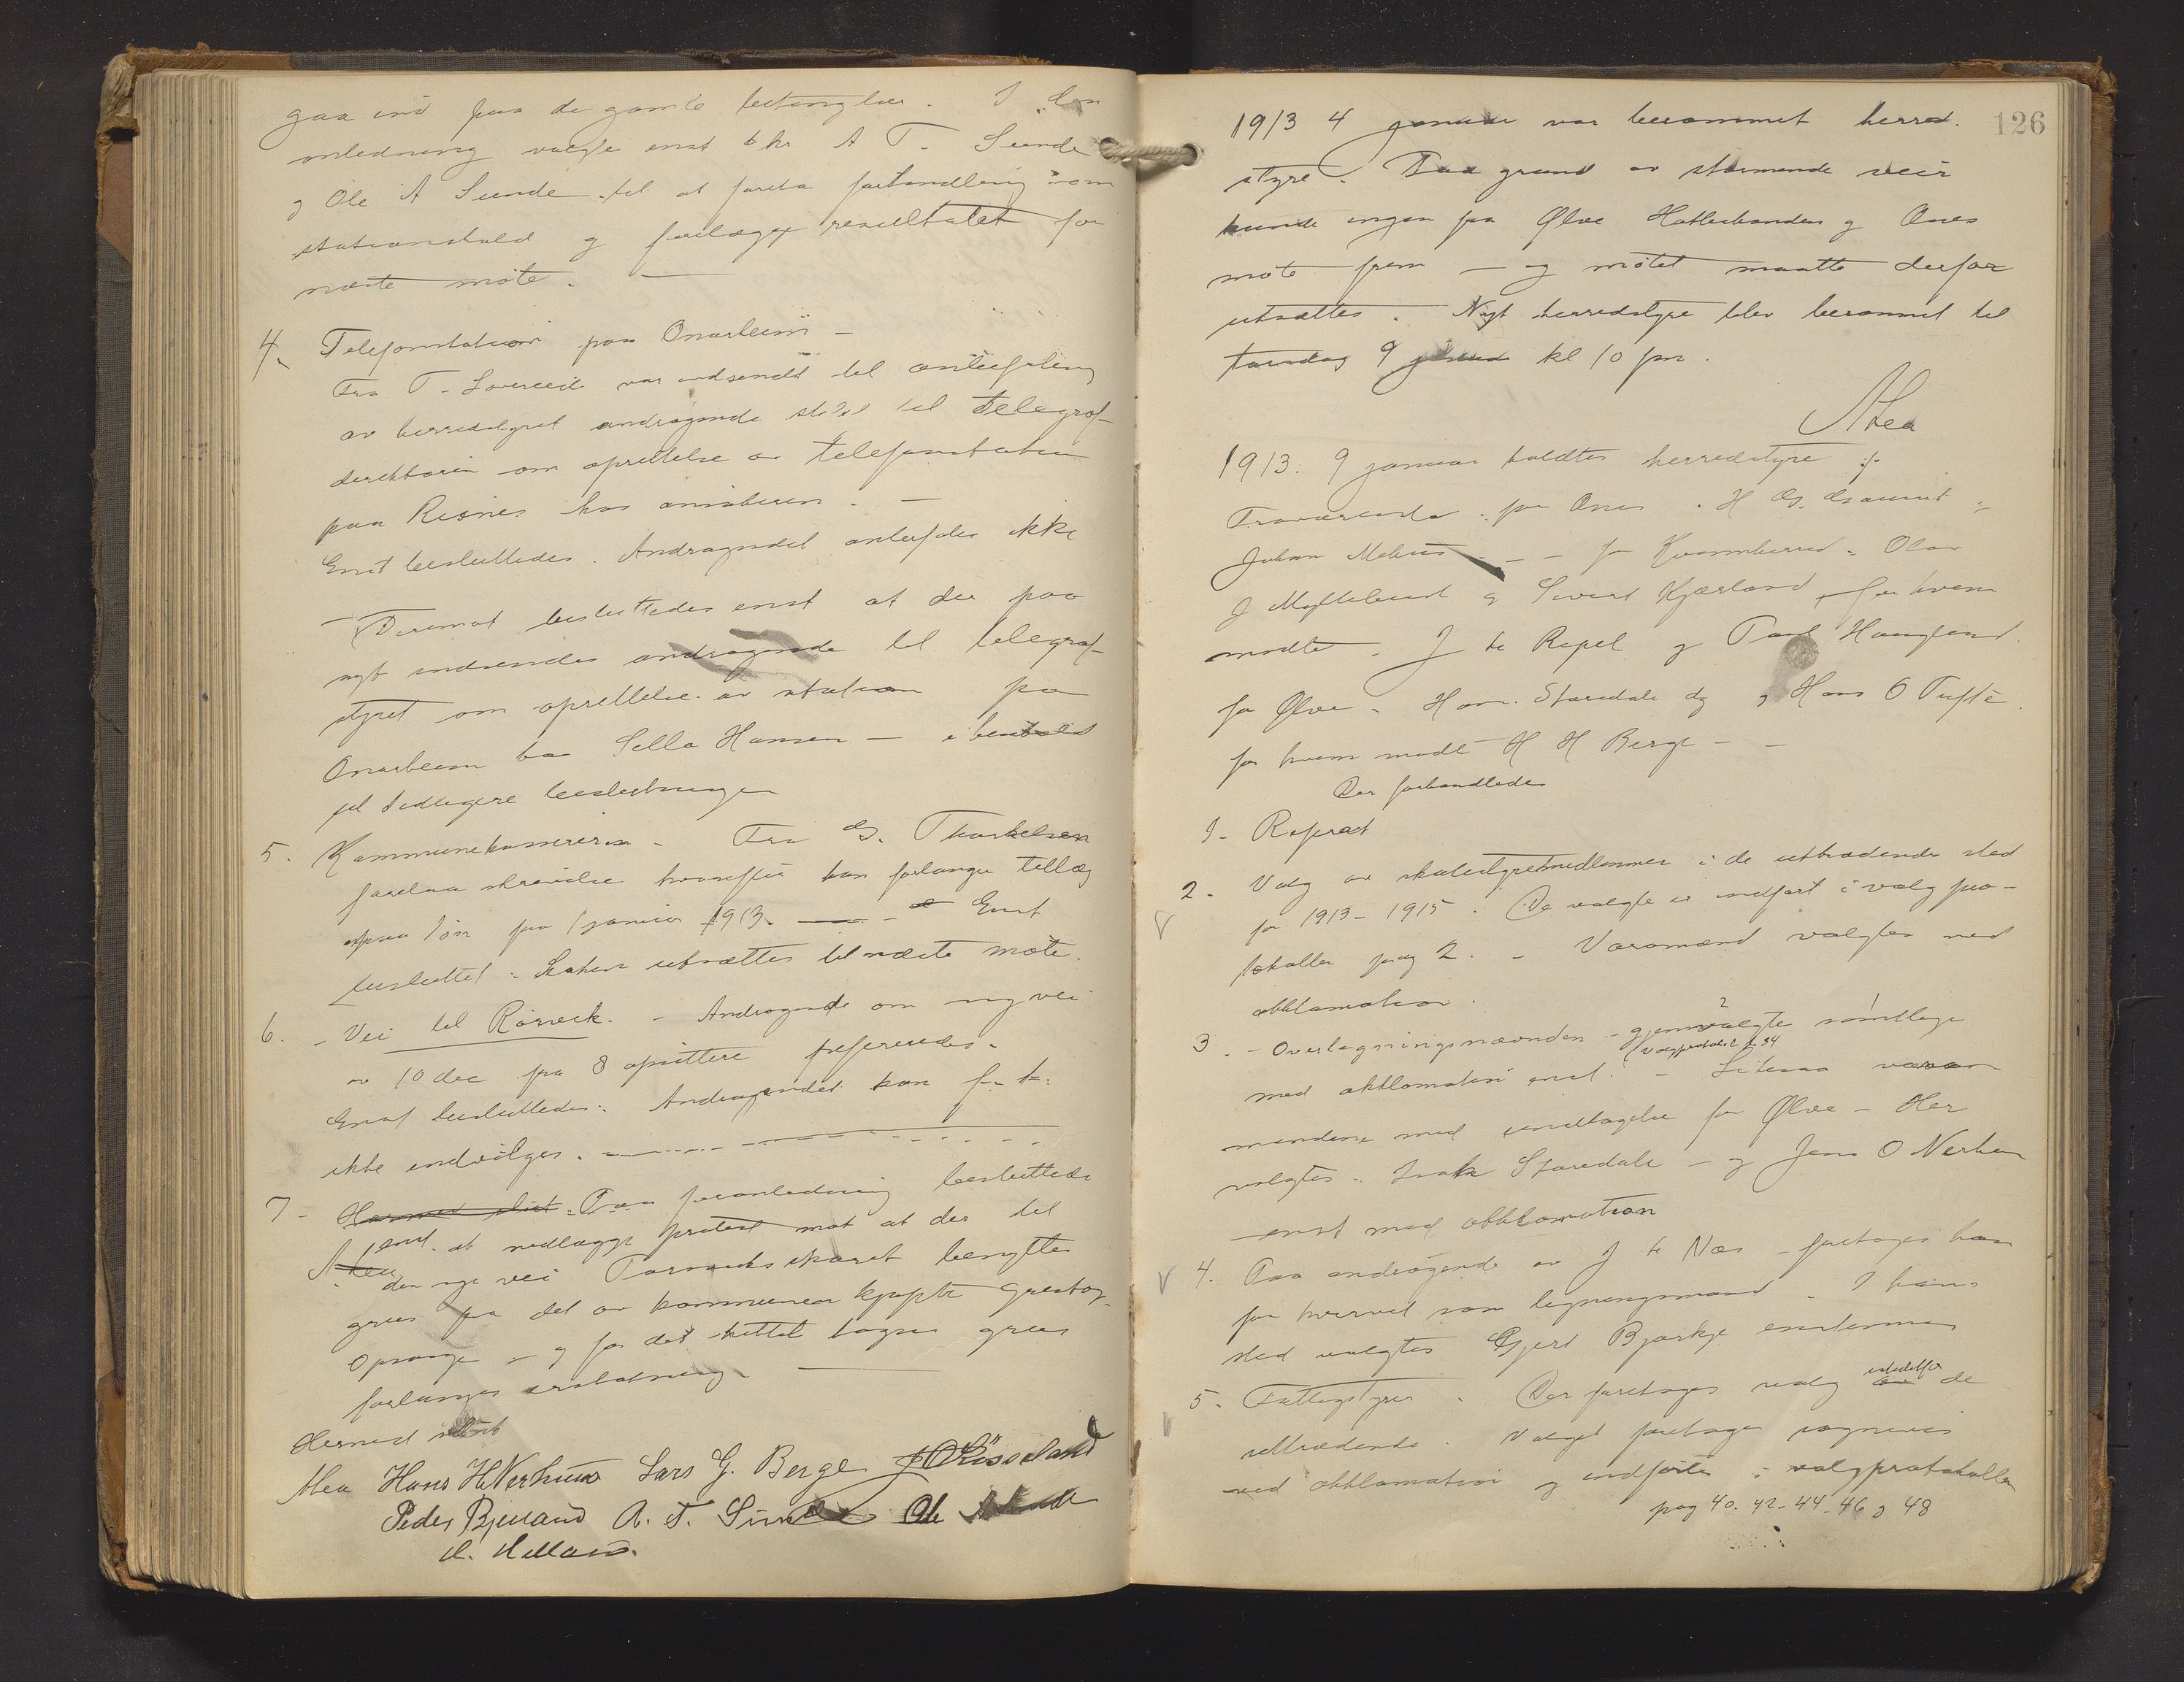 gaa ind paa de gamle betingelser. I den
anledning valgte enst hr A T. Sunde
og Ole A Sunde til at foreta forhandling om
stationshold og forelægge resultatet for
næste møte.
4. Telefonstation paa Onarheim -
Fra T. var indsendt til anbefaling
av herredstyret andragende stilet til telegraf-
direktøren om oprettelse av telefonstation
paa Risnes hos ansøkeren. -
Enst besluttedes. Andragendet anbefales ikke
- Derimot besluttedes enst at der paa
nyt indsendes andragende til telegraf-
styret om oprettelse av station paa
Onarheim hos Sella Hansen - i henhold
til tidligere beslutninger
5. Kommunekassereren - Fra G. Thorkelsen
forelaa skrivelse hvorefter han forlanger tillæg
i sin løn fra 1 januar 1913. - Enst
besluttet: Saken utsættes til næste møte.
6. - Vei til Rørvik. - Andragende om ny vei
av 10 dec fra 8 opsittere refereredes.
Enst besluttedes: Andragendet kan f. t.
ikke indvilges.
7 - Hermed slut. Paa foranledning besluttedes
enst. at nedlægge protest mot at der til
den nye vei benyttes
grus fra det av kommunen kjøpte grustag
og for det hittil tagne grus
forlanges erstatning.
Hermed slut
AHea Hans H Nerhus Lars G. Berge J O Røsseland
Peder Bjelland A. T. Sunde Ole A Sunde
H. Helland.
126
1913 4 januar var berammet herred-
styre. Paa grund av stormende veir
kunde ingen fra Ølve Hatlestranden og Ænes
møte frem - og møtet maatte derfor
utsættes. Nyt herredstyre blev berammet til
torsdag 9 januar kl 10 fm.
AHea
1913. 9 januar holdtes herredstyre
Fraværende for Ænes. H G.
Johan Mehus - - for Kvinnherred - Olav
J Myklebust og Sivert Kjærland, for hvem
mødte. J Repel og Paul Haugland
for Ølve - Hans og Hans O Tufte
for hvem mødte H H Berge - -
Der forhandledes
1 - Referat
2 - Valg av skolestyremedlemmer i de uttrædendes sted
for 1913 - 1915. De valgte er indført i valgpro-
tokollen pag 2. - Varamænd valgtes ved
akklamation.
3. - Overligningsnævnden - gjenvalgte samtlige
(Valgprotokol s. 34
med akklamation enst. - Likesaa vara-
mændene med undtagelse for Ølve - Her
valgtes - Isak - og Jens O Nerhus
- enst med akklamation
4. Paa andragende av J Næs - fritages han
for hvervet som ligningsmand. I hans
sted valgtes Gjert Bjørkje enstemmig
5. Fattigstyret. Der foretages valg istedetfor de
uttrædende. Valget foretages sognevis
ved akklamation og indførtes i valgprotokollen
pag 40. 42. 44. 46 og 48